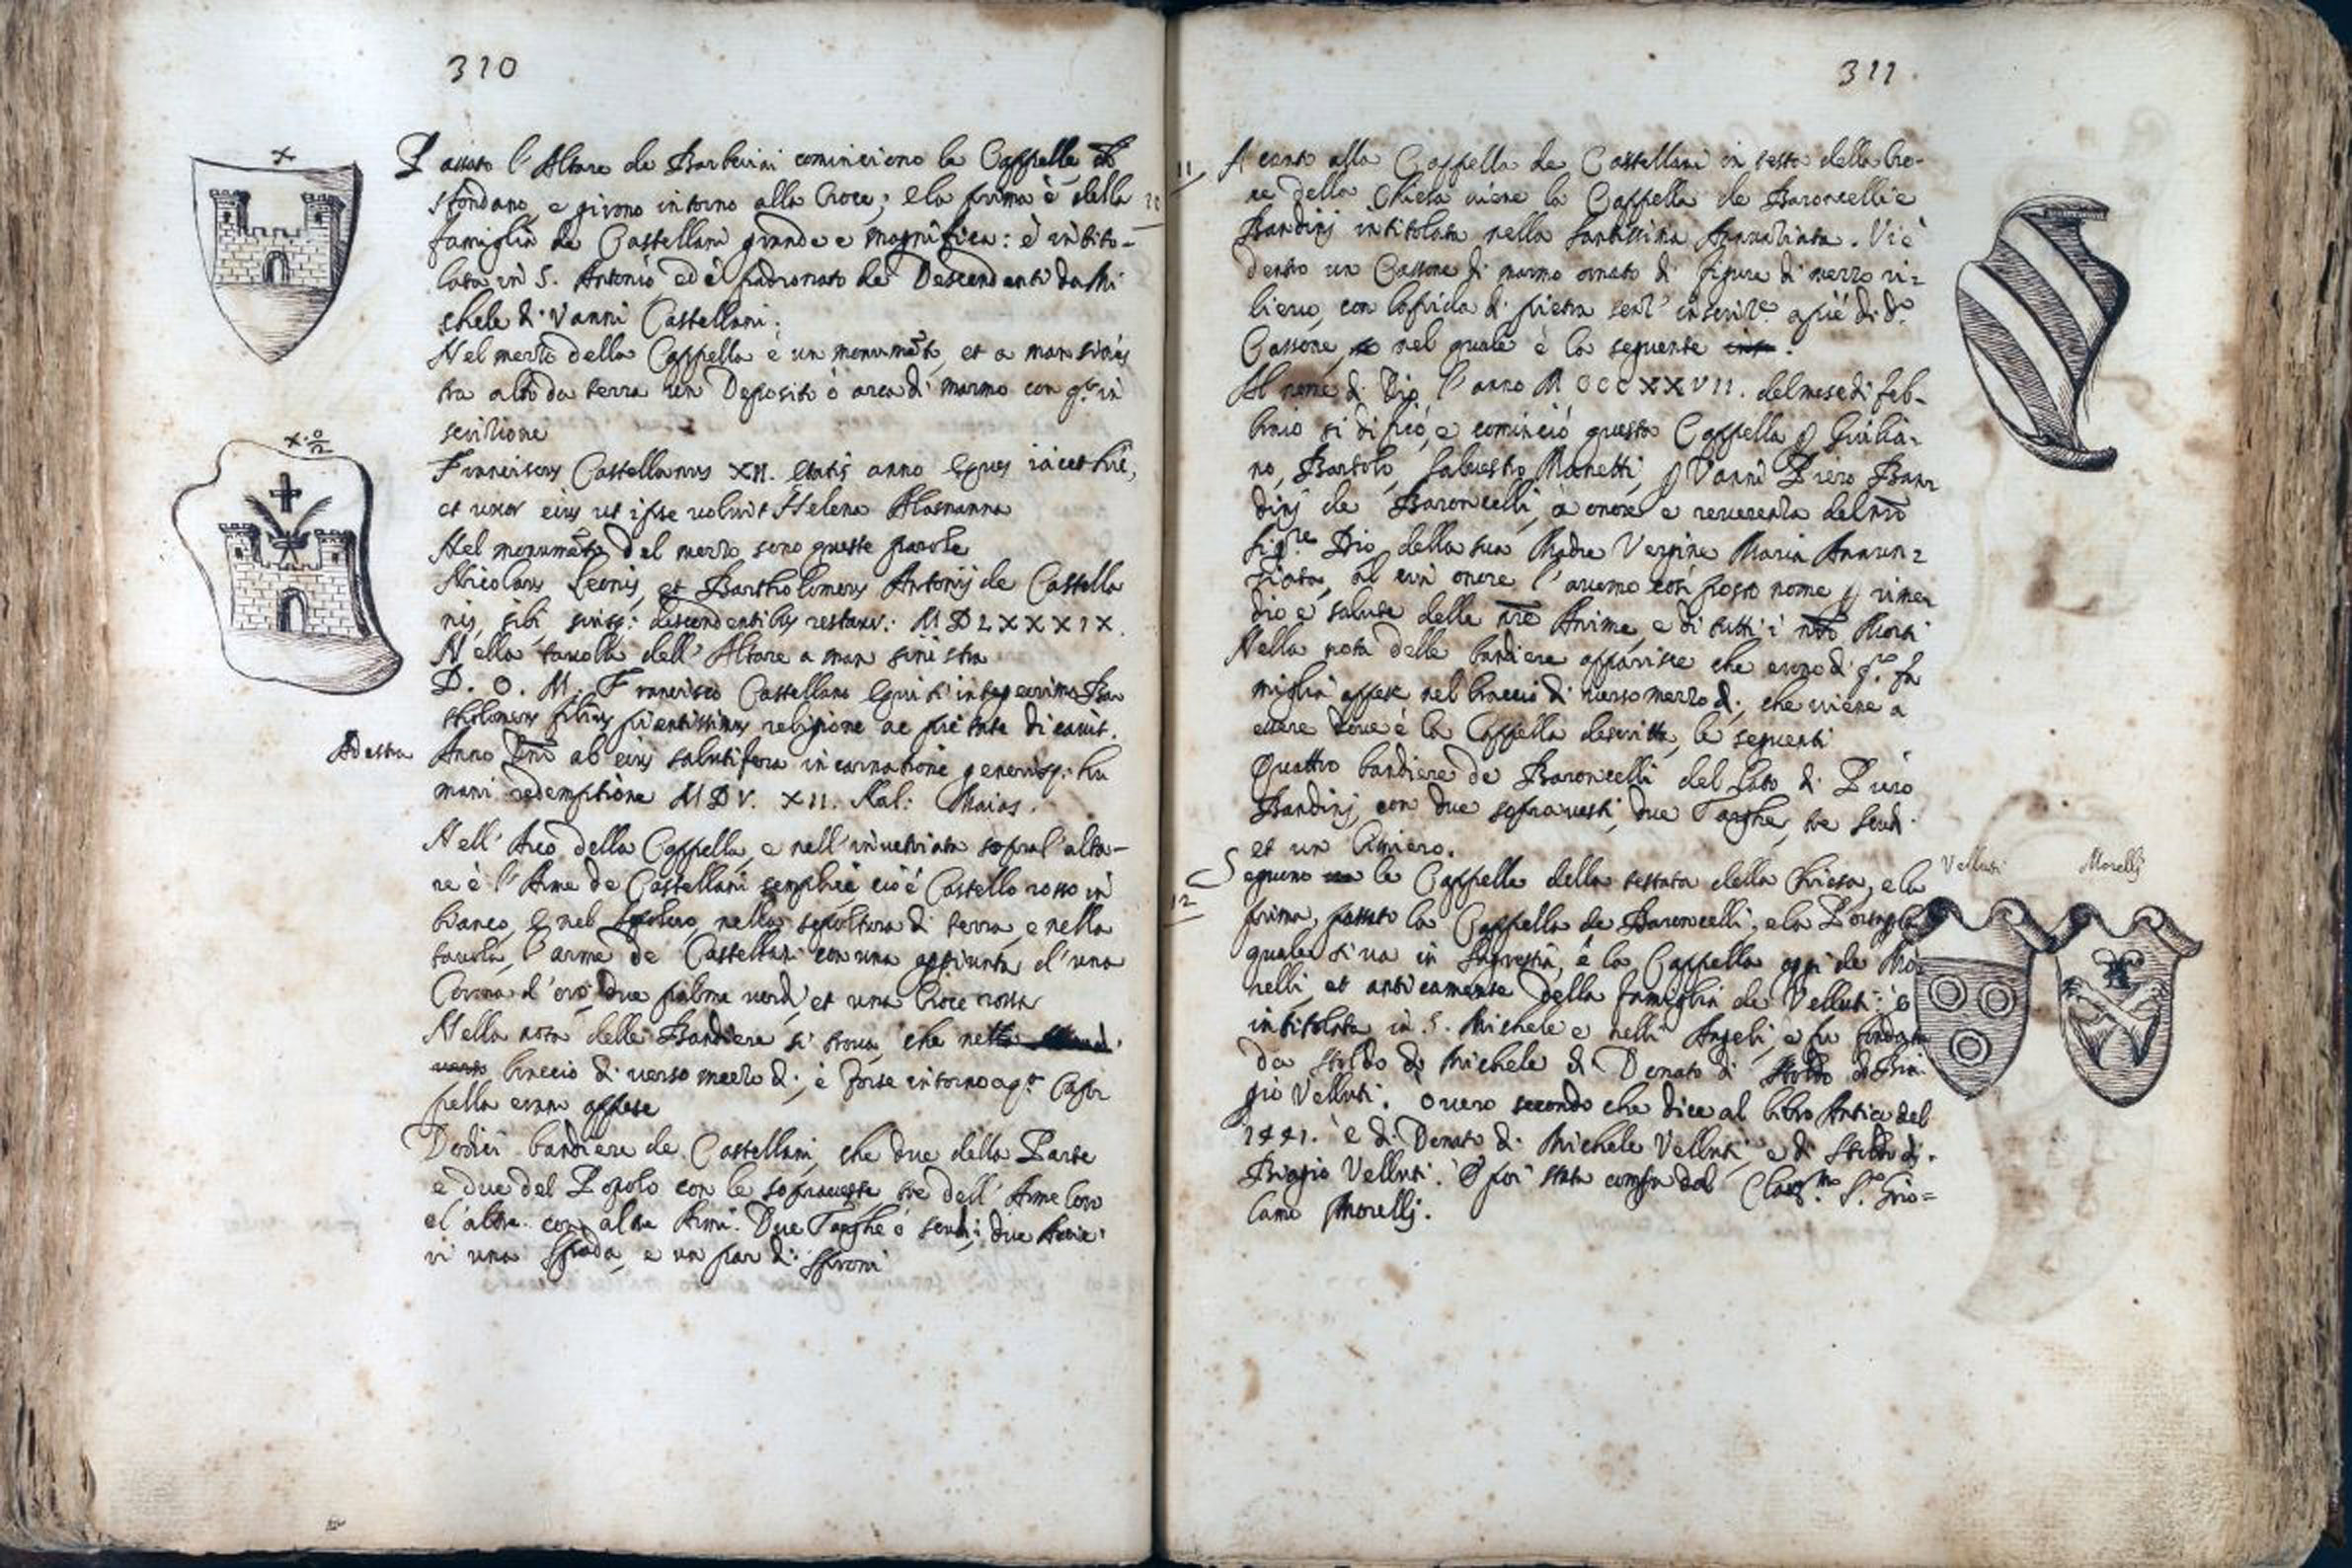 310
Passato l'Altare de Barberini cominciono le Cappelle, che
sfondano, e girono intorno alla Croce; e la prima è della
famiglia de Castellani grande e magnifica: è intito-
lata in S. Antonio ed è padronato de Descendenti da Mi
chele di Vanni Castellani.
Nel mezzo della Cappella è un monumẽto, et a man sinis
tra alto da terra un Deposito ò arca di marmo con q.ta in
scrizione
Franciscus Castellanus XII. etatis anno Eques iacet hic,
et uxor eius ut ipse voluit Helena Alamanna
Nel monumẽto del mezzo sono queste parole
Nicolaus Leonis, et Bartholomeus Antonij de Castella
nis, sibi, suisq: descendentibus restaur: MDLXXXIX.
Nella tavola dell'Altare a man sinistra
D. O. M. Francisco Castellano Equiti integerrimo Bar
tholomeus filius pientissimus religione ac pietate dicavit.
A destra
Anno Dnĩ ab eius salutifera incarnatione generisq: hu
mani redemptione MDV. XII. Kal: Maias.
Nell'Arco della Cappella, e nell'invetriata sopra l'alta-
re è l'Arme de Castellani semplice cioè Castello rosso in
bianco, e nel Sepolcro, nella sepoltura di terra, e nella
tavola, l'arme de Castellani con una aggiunta d'una
Corona d'oro, due palme verdi, et una Croce rossa
Nella nota delle Bandiere si trova, che nel
braccio di verso mezzo dì, e forse intorno a q.ta Cap
pella eran appese
Dodici bandiere de Castellani, che due della Parte
e due del Popolo con le sopraveste tre dell'Arme loro
e l'altre con altre Armi. Due Targhe ò scudi, due
ri una Spada, e un par di Sproni
311
11
A canto alla Cappella de Castellani in testa della Cro-
ce della Chiesa viene la Cappella de Baroncelli e
Bandini intitolata nella Santissima Annuntiata. Vi è
dentro un Cassone di marmo ornato di figure di mezzo ri-
lievo, con lapida di pietra senz'inscriz.e apiè di d.o
Cassone, nel quale è la seguente
Al nome di Dio l'anno MCCCXXVII. del mese di feb-
braio si dificò, e cominciò questa Cappella p Giulia-
no, Bartolo, Salvestro Manetti, p Vanni Piero Ban
dinj de Baroncelli, à onore e reverenza del nr̃o
Sig.re Dio, della sua Madre Vergine Maria Annun-
ziata, al cui onore l'avemo così posto nome p rime
dio e salute delle nr̃e Anime, e di tutti i nr̃i Morti
Nella nota delle bandiere apparisce che erono di q.ta fa
miglia appese nel braccio di verso mezzo dì, che viene a
essere dove è la Cappella descritta, le seguenti
Quattro bandiere de Baroncelli del lato di Piero
Bandinj, con due sopravesti, due Targhe, tre Scudi
et un Cimiero.
12
Seguono le Cappelle della testata della Chiesa, e la
prima, passato la Cappella de Baroncelli, e la Porta p la
quale si va in Sagrestia, è la Cappella oggi de Mo-
relli, et anticamente della famiglia de Velluti: è
intitolata in S. Michele e nelli Angeli, e fu fondata
da Stoldo di Michele di Donato di Stoldo di Bia
gio Velluti. Overo secondo che dice al libro Antico del
1441. è di Donato di Michele Velluti e di Stoldo di
Biagio Velluti. È poi stata compra dal Clariss.mo S.r Giro=
lamo Morellj.
Velluti
Morellj